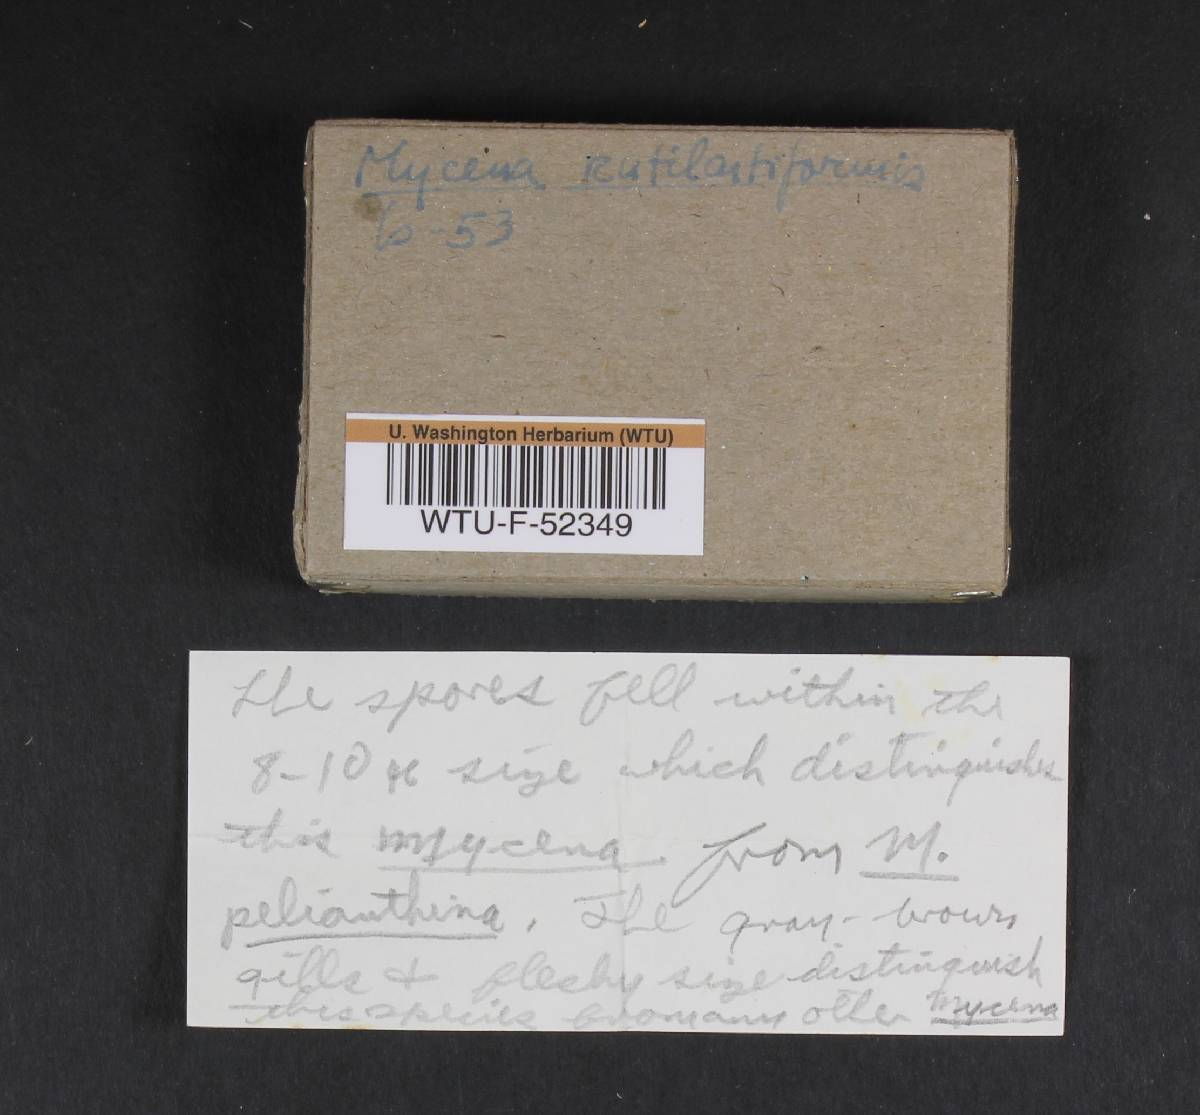 Mycena rutilantiformis
Ts-53
U. Washington Herbarium (WTU)
WTU-F-52349
The spores fell within the
8-10 µ size which distinguishes
this Mycena from M.
pelianthina. The gray-brown
gills & fleshy size distinguish
this species from any other Mycena